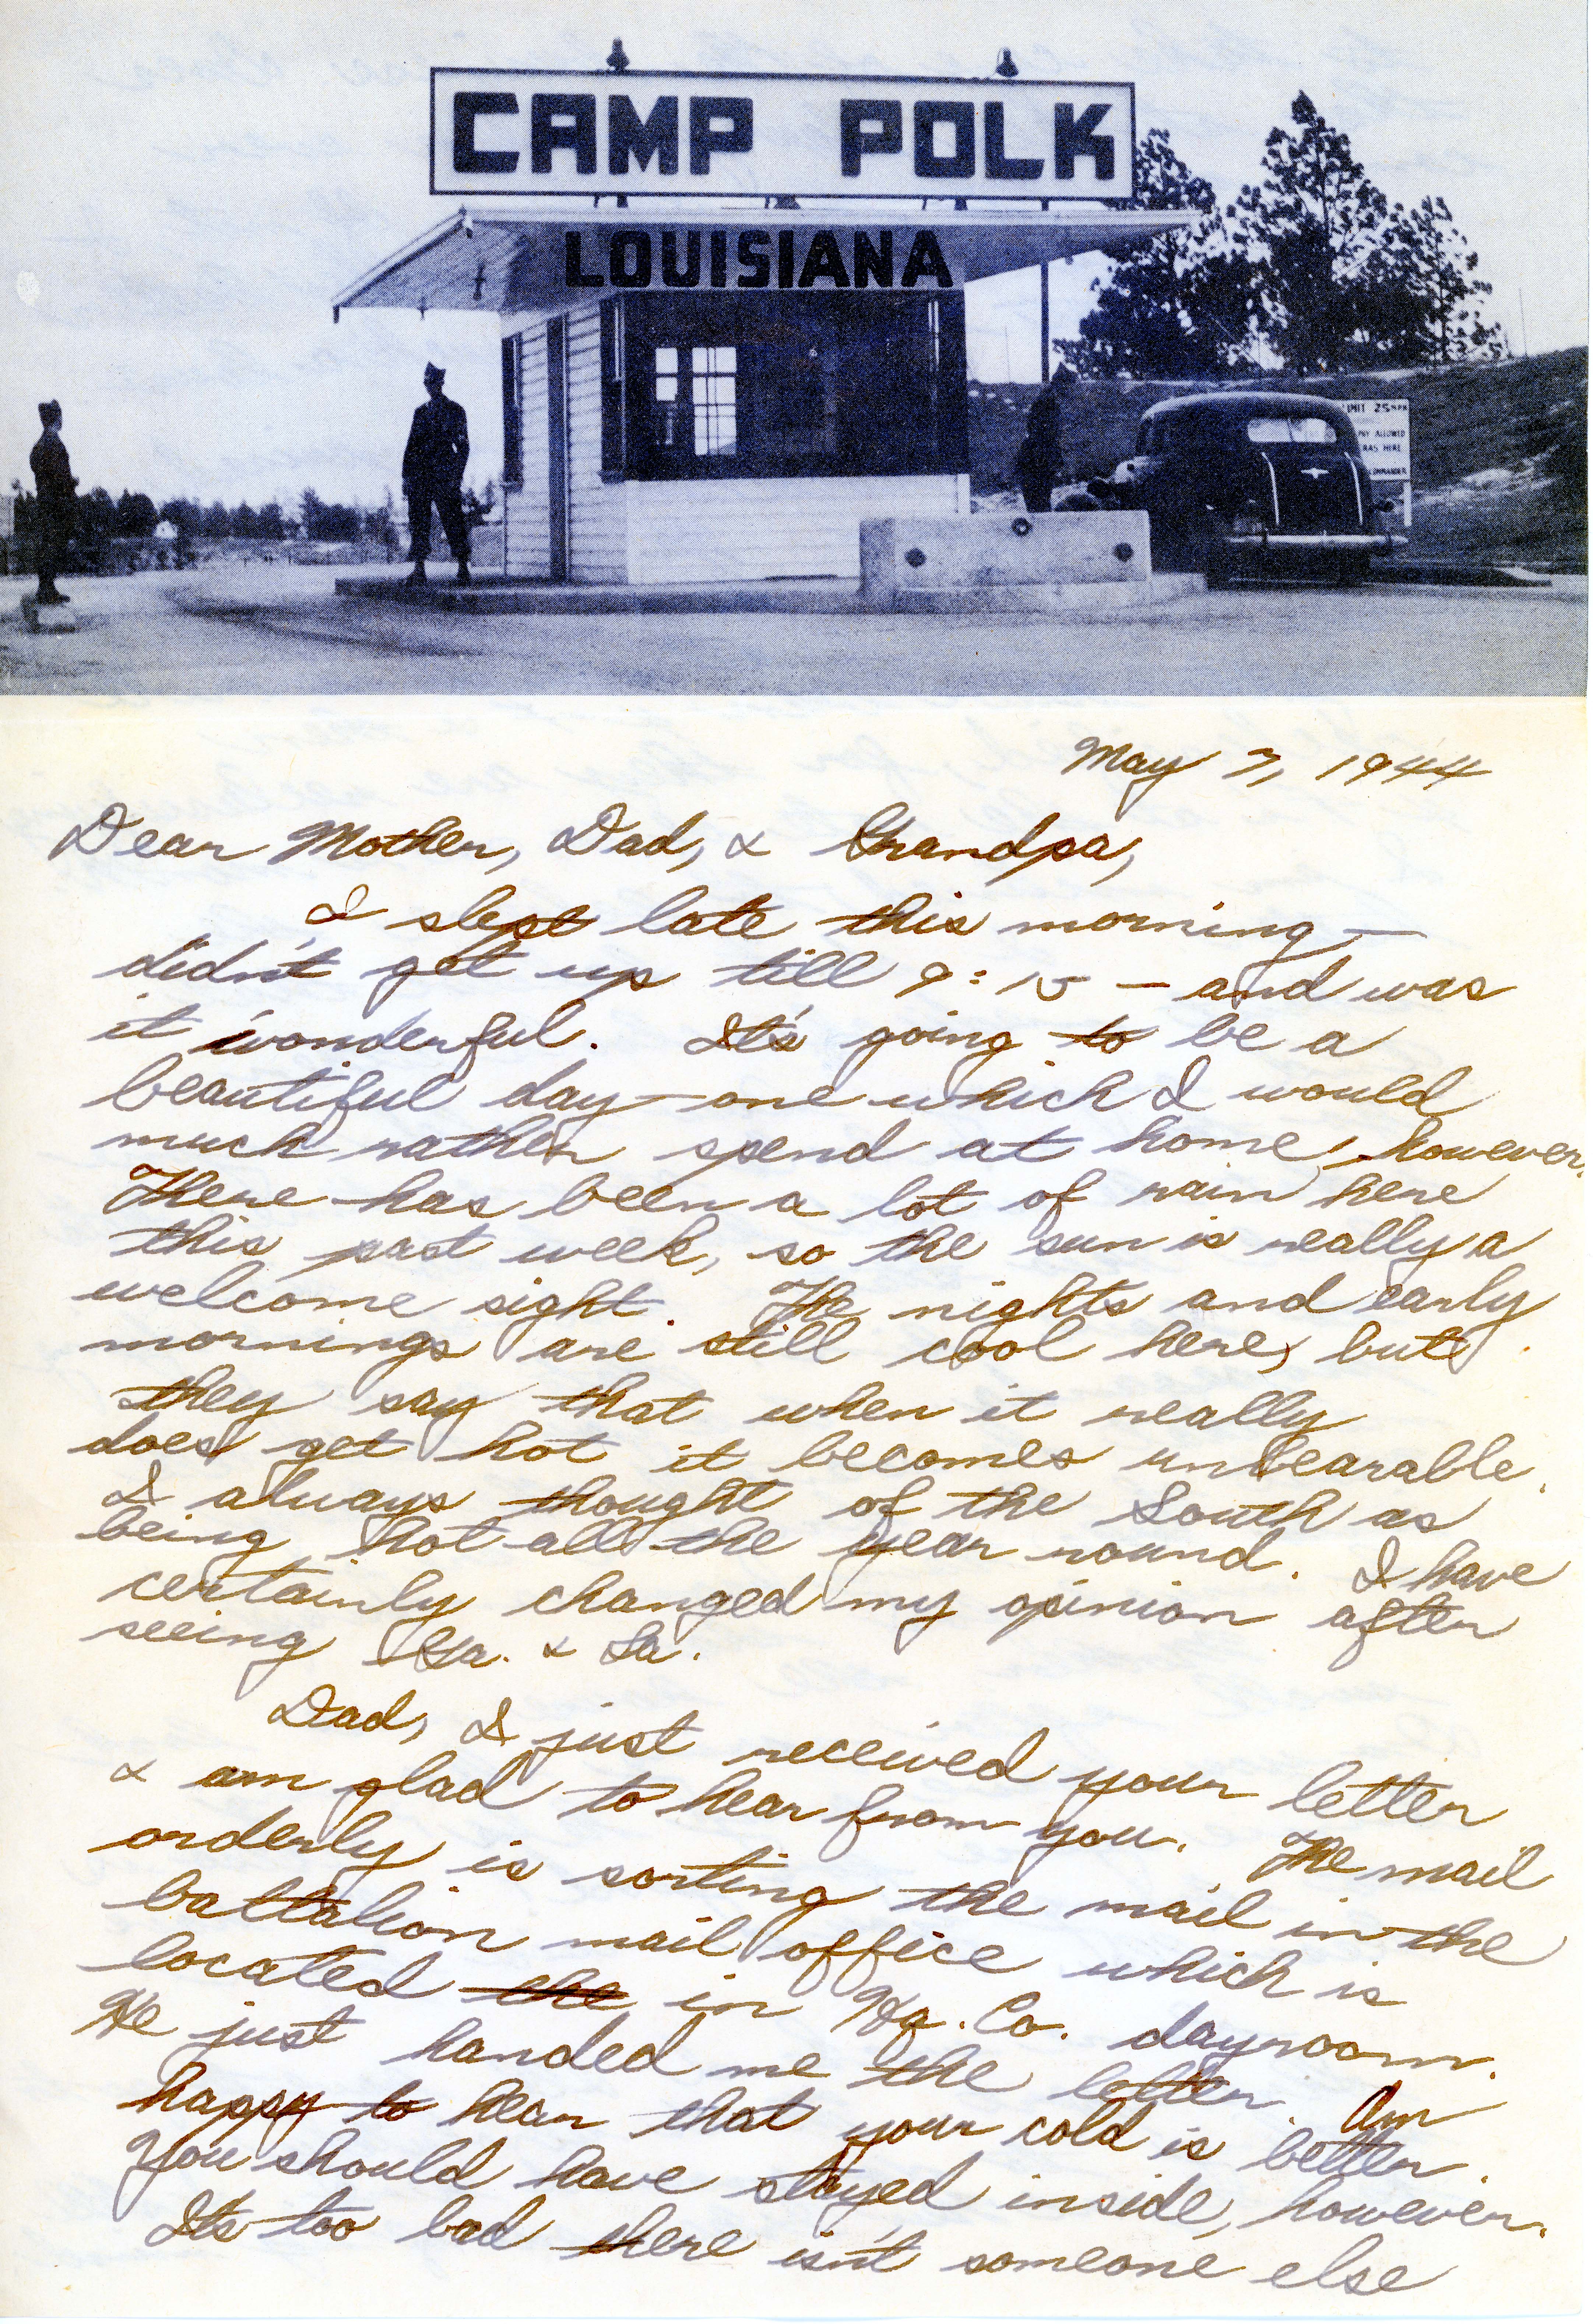 CAMP POLK
LOUISIANA
IMIT 25 MPH
ALLOWED
RAS HERE
OMMANDER
May 7, 1944
Dear Mother, Dad, & Grandpa,
I slept late this morning —
didn't get up till 9:15 — and was
it wonderful. It's going to be a
beautiful day — one which I would
much rather spend at home, however.
There has been a lot of rain here
this past week, so the sun is really a
welcome sight. The nights and early
mornings are still cool here, but
they say that when it really
does get hot it becomes unbearable.
I always thought of the South as
being hot all the year round. I have
certainly changed my opinion after
seeing Ga. & La.
Dad, I just received your letter
& am glad to hear from you. The mail
orderly is sorting the mail in the
battalion mail office which is
located the in Hq. Co. dayroom.
He just handed me the letter. Am
happy to hear that your cold is better.
You should have stayed inside, however.
It's too bad there isn't someone else